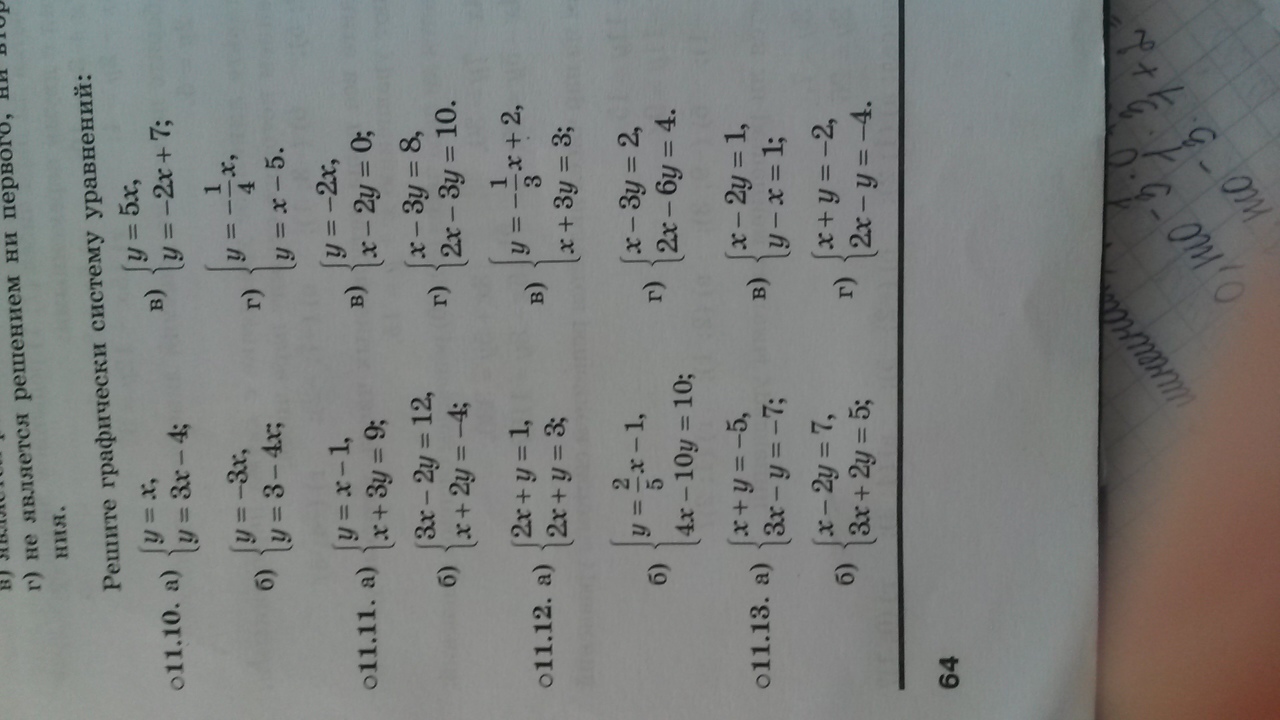 г) не является решением ни первого, ни
ния.
Решите графически систему уравнений:
○11.10. а) {y = x, y = 3x – 4; в) {y = 5x, y = –2x + 7;
б) {y = –3x, y = 3 – 4x; г) {y = –1/4x, y = x – 5.
○11.11. а) {y = x – 1, x + 3y = 9; в) {y = –2x, x – 2y = 0;
б) {3x – 2y = 12, x + 2y = –4; г) {x – 3y = 8, 2x – 3y = 10.
○11.12. а) {2x + y = 1, 2x + y = 3; в) {y = –1/3x + 2, x + 3y = 3;
б) {y = 2/5x – 1, 4x – 10y = 10; г) {x – 3y = 2, 2x – 6y = 4.
○11.13. а) {x + y = –5, 3x – y = –7; в) {x – 2y = 1, y – x = 1;
б) {x – 2y = 7, 3x + 2y = 5; г) {x + y = –2, 2x – y = –4.
64